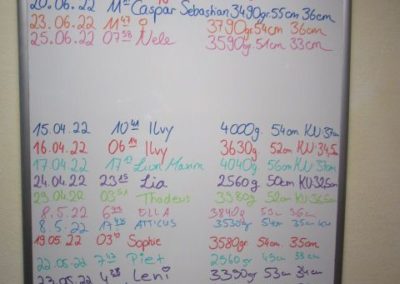 20.06.22 Caspar Sebastian 3490gr. 55cm 36cm
23.06.22 11 3790gr 54cm 36cm
25.06.22 07 58 Nele 3590gr. 51cm 33cm
15.04.22 10 Ilvy 4000g. 54cm KU 37cm
16.04.22 06 Ilvy 3630g. 52cm KU 34,5cm
17.04.22 17 Lion Maxim 4040g. 56cm KU 37cm
24.04.22 23 15 Lia 2560g 50cm KU 32,5cm
29.04.22 03 Thadeus 3380g 52cm KU
8.5.22 6 ELLA 3840g 53cm 36cm
8.5.22 17 ATTICUS 3530gr 54cm 35cm KU
19.05.22 03 Sophie 3580gr. 54cm. 35cm
22.05.22 7 Piet 2560gr 49cm 33cm
23.05.22 4 Leni 3390gr 53cm 34cm